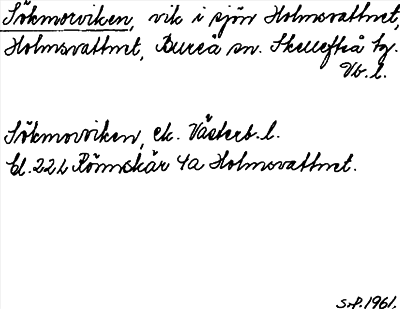 Sökmorviken, vik i sjön Holmsvattnet,
Holmsvattnet, Bureå sn. Skellefteå tg.
Vb. l.
Sökmorviken, ek. Västerb. l.
bl. 22 L Rönnskär 4a Holmsvattnet.
1961.